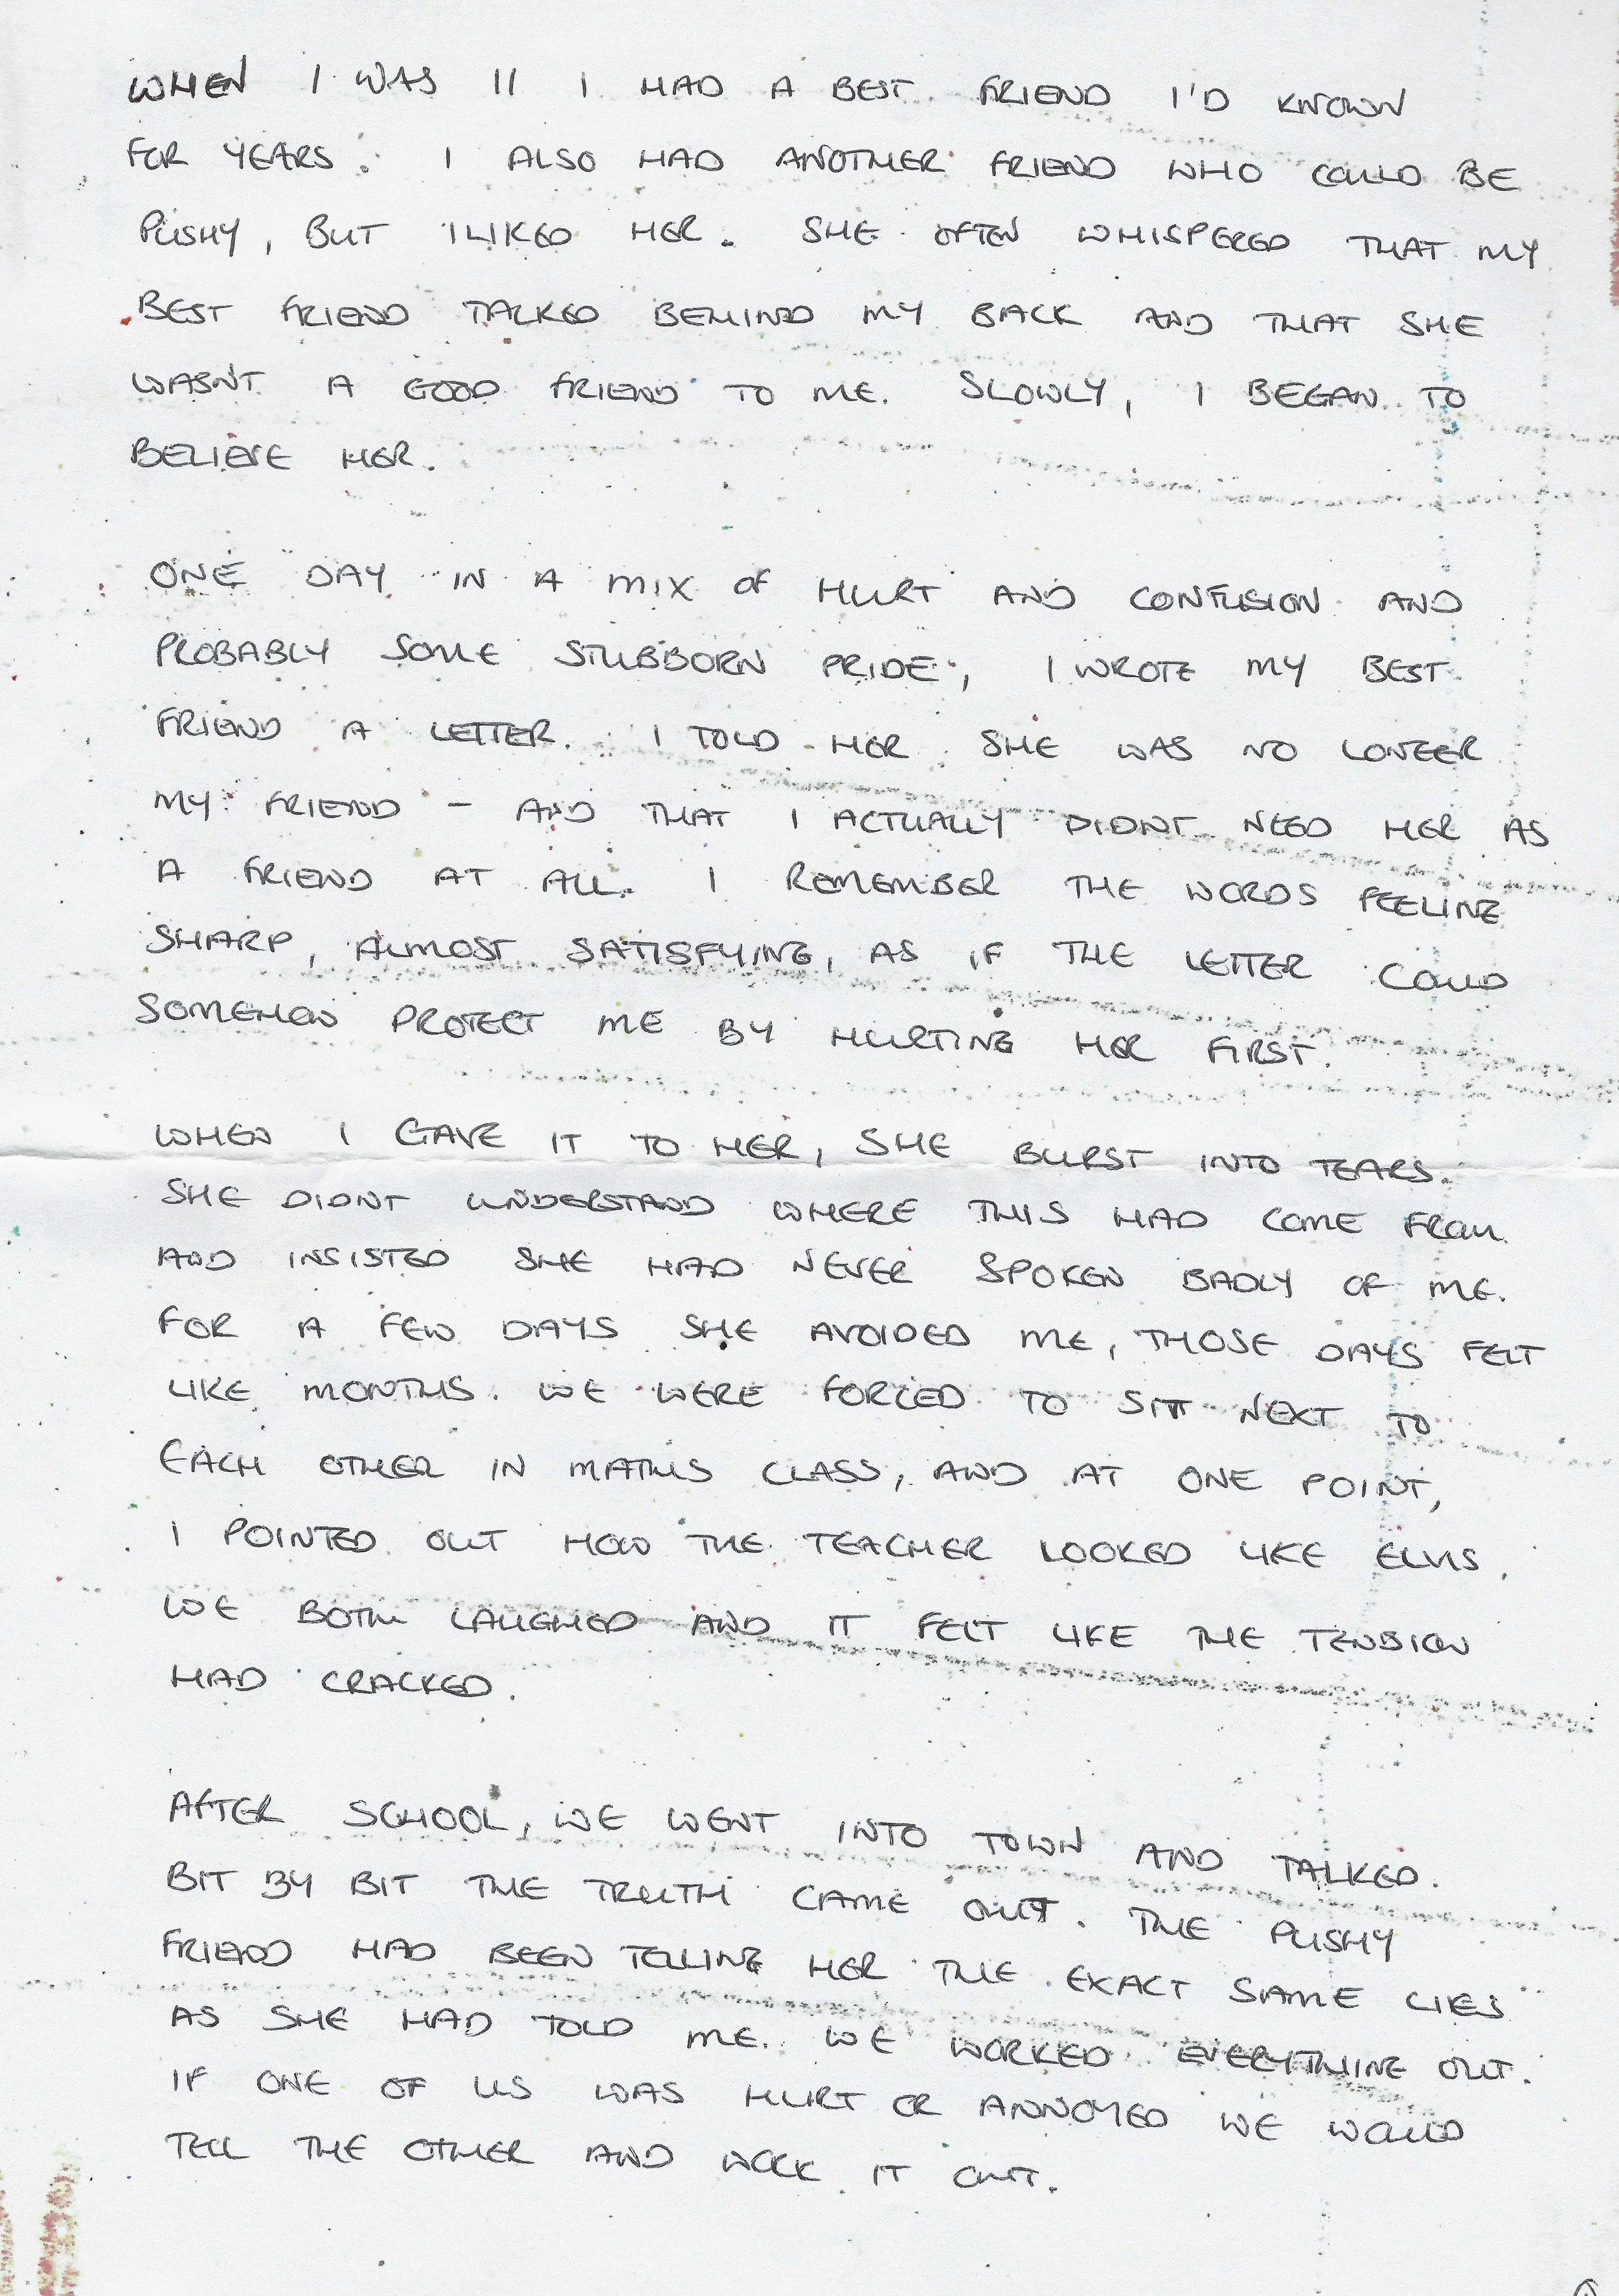 WHEN I WAS 11 I HAD A BEST FRIEND I'D KNOWN
FOR YEARS. I ALSO HAD ANOTHER FRIEND WHO COULD BE
PUSHY, BUT I LIKED HER. SHE OFTEN WHISPERED THAT MY
BEST FRIEND TALKED BEHIND MY BACK AND THAT SHE
WASN'T A GOOD FRIEND TO ME. SLOWLY, I BEGAN TO
BELIEVE HER.
ONE DAY IN A MIX OF HURT AND CONFUSION AND
PROBABLY SOME STUBBORN PRIDE, I WROTE MY BEST
FRIEND A LETTER. I TOLD HER SHE WAS NO LONGER
MY FRIEND - AND THAT I ACTUALLY DIDNT NEED HER AS
A FRIEND AT ALL. I REMEMBER THE WORDS FEELING
SHARP, ALMOST SATISFYING, AS IF THE LETTER COULD
SOMEHOW PROTECT ME BY HURTING HER FIRST.
WHEN I GAVE IT TO HER, SHE BURST INTO TEARS.
SHE DIDNT UNDERSTAND WHERE THIS HAD COME FROM
AND INSISTED SHE HAD NEVER SPOKEN BADLY OF ME.
FOR A FEW DAYS SHE AVOIDED ME, THOSE DAYS FELT
LIKE MONTHS. WE WERE FORCED TO SIT NEXT TO
EACH OTHER IN MATHS CLASS, AND AT ONE POINT,
I POINTED OUT HOW THE TEACHER LOOKED LIKE ELVIS.
WE BOTH LAUGHED AND IT FELT LIKE THE TENSION
HAD CRACKED.
AFTER SCHOOL, WE WENT INTO TOWN AND TALKED.
BIT BY BIT THE TRUTH CAME OUT. THE PUSHY
FRIEND HAD BEEN TELLING HER THE EXACT SAME LIES
AS SHE HAD TOLD ME. WE WORKED EVERYTHING OUT.
IF ONE OF US WAS HURT OR ANNOYED WE WOULD
TELL THE OTHER AND WORK IT OUT.